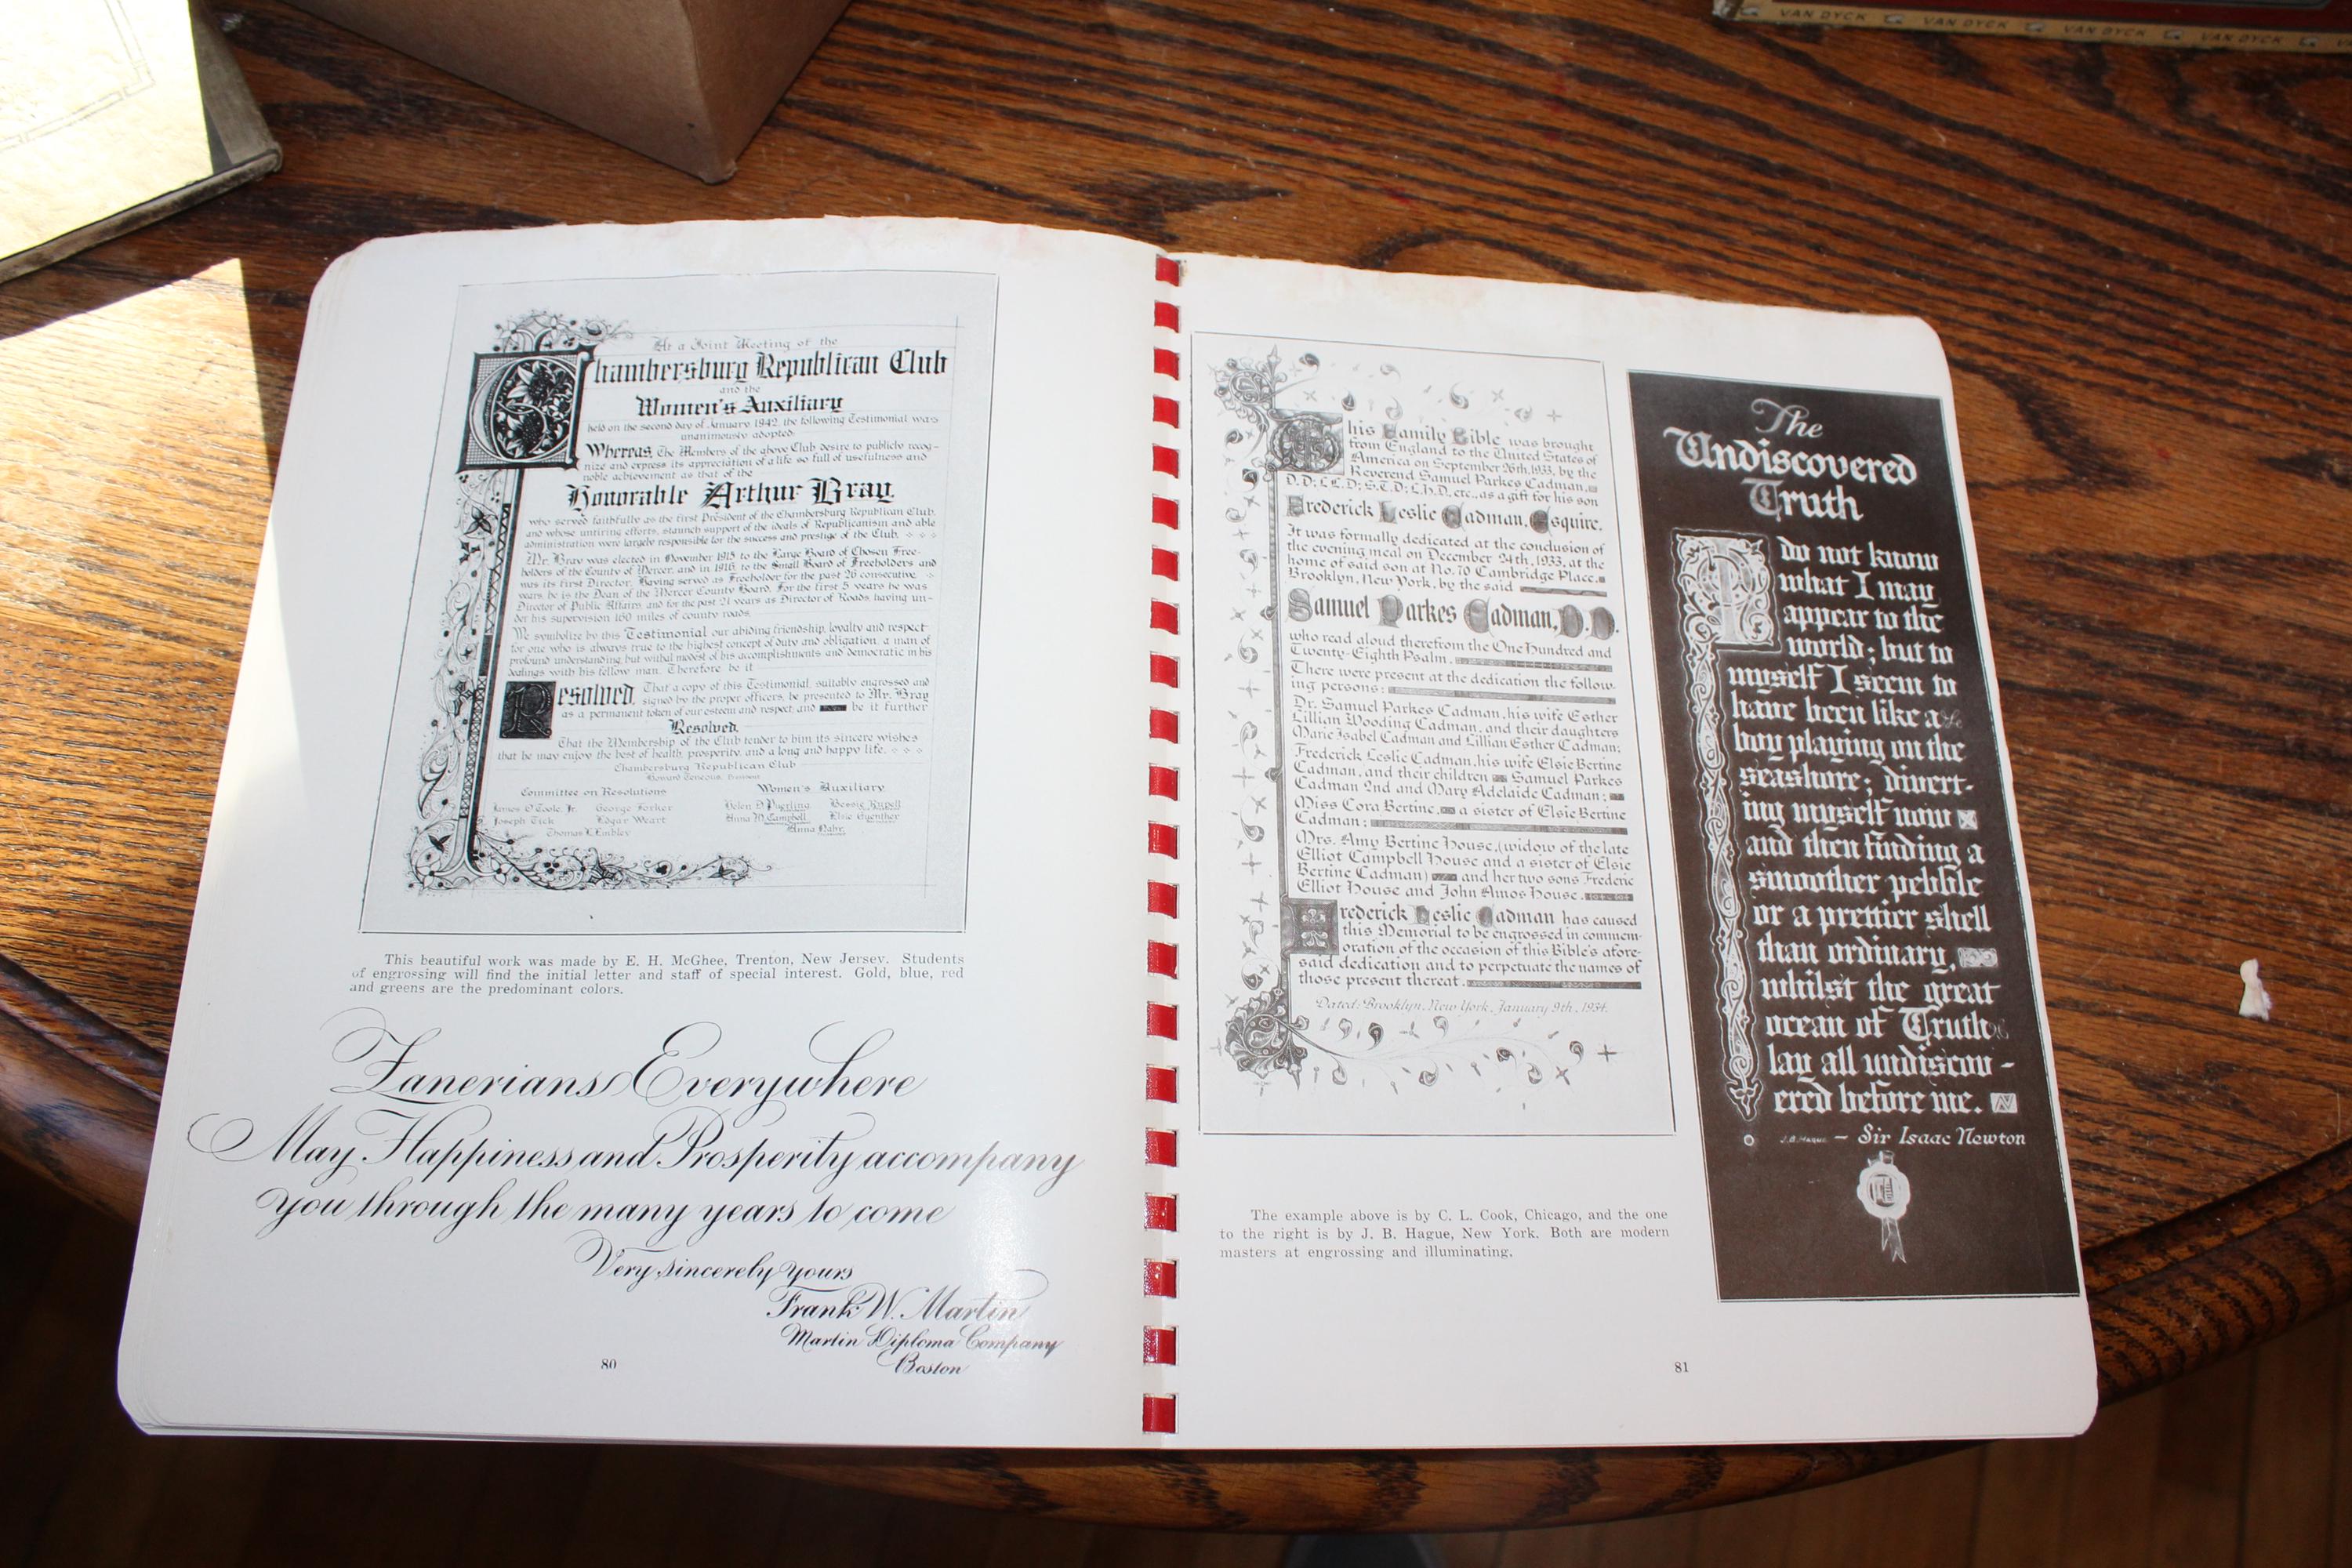 VAN DYCK VAN DYCK VAN DYCK VAN DYCK
At a Joint Meeting of the
Chambersburg Republican Club
and the
Women's Auxiliary
held on the second day of January 1942, the following Testimonial was
unanimously adopted:
Whereas, The Members of the above Club desire to publicly recog-
nize and express its appreciation of a life so full of usefulness and
noble achievement as that of the
Honorable Arthur Bray,
who served faithfully as the first President of the Chambersburg Republican Club,
and whose untiring efforts, staunch support of the ideals of Republicanism and able
administration were largely responsible for the success and prestige of the Club.
Mr. Bray was elected in November 1915 to the Large Board of Chosen Free-
holders of the County of Mercer, and in 1916, to the Small Board of Freeholders and
was its first Director. Having served as Freeholder for the past 26 consecutive
years, he is the Dean of the Mercer County Board. For the first 5 years he was
Director of Public Affairs, and for the past 21 years as Director of Roads, having un-
der his supervision 160 miles of county roads.
We symbolize by this Testimonial our abiding friendship, loyalty and respect
for one who is always true to the highest concept of duty and obligation, a man of
profound understanding, but withal modest of his accomplishments and democratic in his
dealings with his fellow man. Therefore be it
Resolved, That a copy of this Testimonial, suitably engrossed and
signed by the proper officers, be presented to Mr. Bray
as a permanent token of our esteem and respect; and be it further
Resolved,
That the Membership of the Club tender to him its sincere wishes
that he may enjoy the best of health, prosperity, and a long and happy life.
Chambersburg Republican Club
Committee on Resolutions Women's Auxiliary
James O'Toole Jr. George Forker Helen D. Bessie
Joseph Tick Edgar Weart Anna M. Campbell Elsie Guenther
Thomas L. Embley Anna
This beautiful work was made by E. H. McGhee, Trenton, New Jersey. Students
of engrossing will find the initial letter and staff of special interest. Gold, blue, red
and greens are the predominant colors.
Zanerians Everywhere
May Happiness and Prosperity accompany
you through the many years to come
Very sincerely yours
Frank W. Martin
Martin Diploma Company
Boston
80
This Family Bible was brought
from England to the United States of
America on September 26th, 1933, by the
Reverend Samuel Parkes Cadman,
D.D; LL.D; S.T.D; L.H.D, etc., as a gift for his son
Frederick Leslie Cadman, Esquire.
It was formally dedicated at the conclusion of
the evening meal on December 24th, 1933, at the
home of said son at No. 70 Cambridge Place,
Brooklyn, New York, by the said
Samuel Parkes Cadman, D.D.
who read aloud therefrom the One Hundred and
Twenty-Eighth Psalm.
There were present at the dedication the follow-
ing persons:
Dr. Samuel Parkes Cadman, his wife Esther
Lillian Wooding Cadman, and their daughters
Marie Isabel Cadman and Lillian Esther Cadman;
Frederick Leslie Cadman, his wife Elsie Bertine
Cadman, and their children Samuel Parkes
Cadman 2nd and Mary Adelaide Cadman;
Miss Cora Bertine, a sister of Elsie Bertine
Cadman;
Mrs. Amy Bertine House, (widow of the late
Elliot Campbell House and a sister of Elsie
Bertine Cadman) and her two sons Frederic
Elliot House and John Amos House.
Frederick Leslie Cadman has caused
this Memorial to be engrossed in commem-
oration of the occasion of this Bible's afore-
said dedication and to perpetuate the names of
those present thereat.
Dated: Brooklyn, New York, January 9th, 1934.
The example above is by C. L. Cook, Chicago, and the one
to the right is by J. B. Hague, New York. Both are modern
masters at engrossing and illuminating.
The
Undiscovered
Truth
I do not know
what I may
appear to the
world; but to
myself I seem to
have been like a
boy playing on the
seashore; divert-
ing myself now
and then finding a
smoother pebble
or a prettier shell
than ordinary,
whilst the great
ocean of Truth
lay all undiscov-
ered before me.
J.B. Hague – Sir Isaac Newton
81